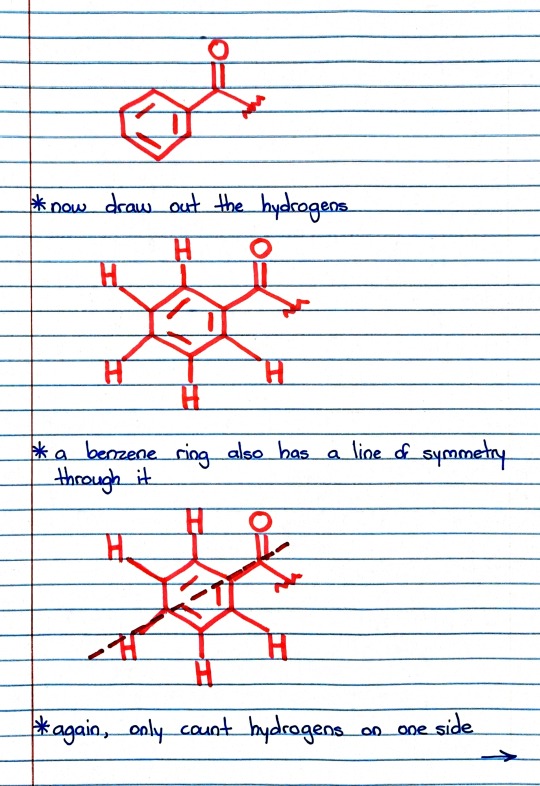 O
* now draw out the hydrogens
H O
H
H H
H
* a benzene ring also has a line of symmetry
through it
H O
H
H H
H
* again, only count hydrogens on one side
→